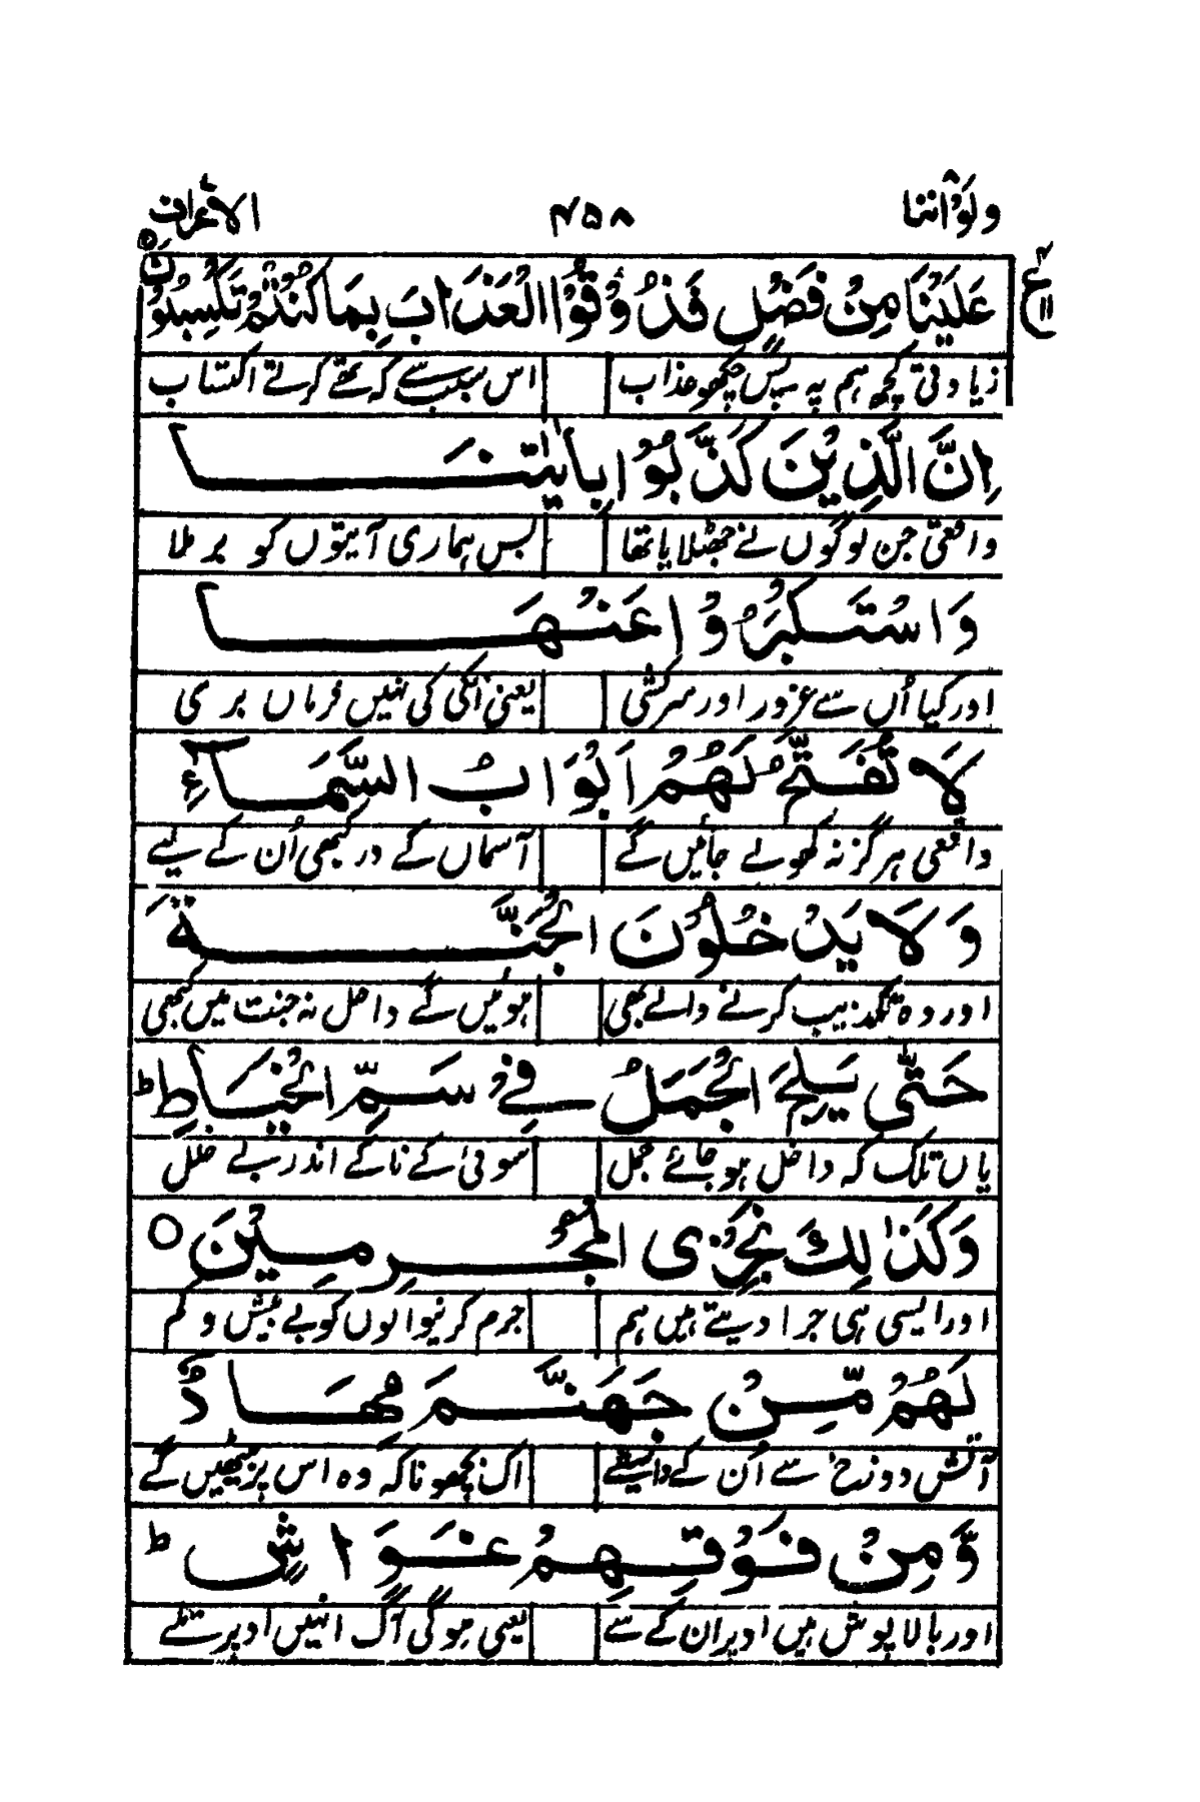 ولو اننا ۸ ۴۵۸ الاعراف ۷
عَلَيْنَا مِنْ فَضْلٍ فَذُوْقُوا الْعَذَابَ بِمَا كُنْتُمْ تَكْسِبُوْنَ ۵
ع ۴ ۱۱
زیادتی کچھ ہم پہ پس چکھو عذاب اس سبب سے کہ تھے کرتے اکتساب
اِنَّ الَّذِيْنَ كَذَّبُوْا بِاٰيٰتِنَا
واقعی جن لوگوں نے جھٹلایا تھا بس ہماری آیتوں کو برملا
وَاسْتَكْبَرُوْا عَنْهَا
اور کیا اُں سے غرور اور سرکشی یعنی انکی کی نہیں فرماں بری
لَا تُفَتَّحُ لَهُمْ اَبْوَابُ السَّمَآءِ
واقعی ہرگز نہ کھولے جائیں گے آسماں کے در کبھی اُن کے لیے
وَلَا يَدْخُلُوْنَ الْجَنَّةَ
اور وہ تکذیب کرنے والے بھی ہوئیں گے داخل نہ جنت میں کبھی
حَتّٰى يَلِجَ الْجَمَلُ فِيْ سَمِّ الْخِيَاطِ ط
یاں تلک کہ داخل ہو جائے جمل سوئی کے ناکے اندر بے خلل
وَكَذٰلِكَ نَجْزِى الْمُجْرِمِيْنَ ○
اور ایسی ہی جزا دیتے ہیں ہم جرم کرنیوالوں کو بے بیش و کم
لَهُمْ مِّنْ جَهَنَّمَ مِهَادٌ
آتش دوزخ سے اُن کے واسطے اک بچھونا کہ وہ اس پر بیٹھیں گے
وَّمِنْ فَوْقِهِمْ غَوَاشٍ ط
اور بالا پوش ہیں اوپر ان کے سے یعنی ہوگی آگ انہیں اوپر تلے